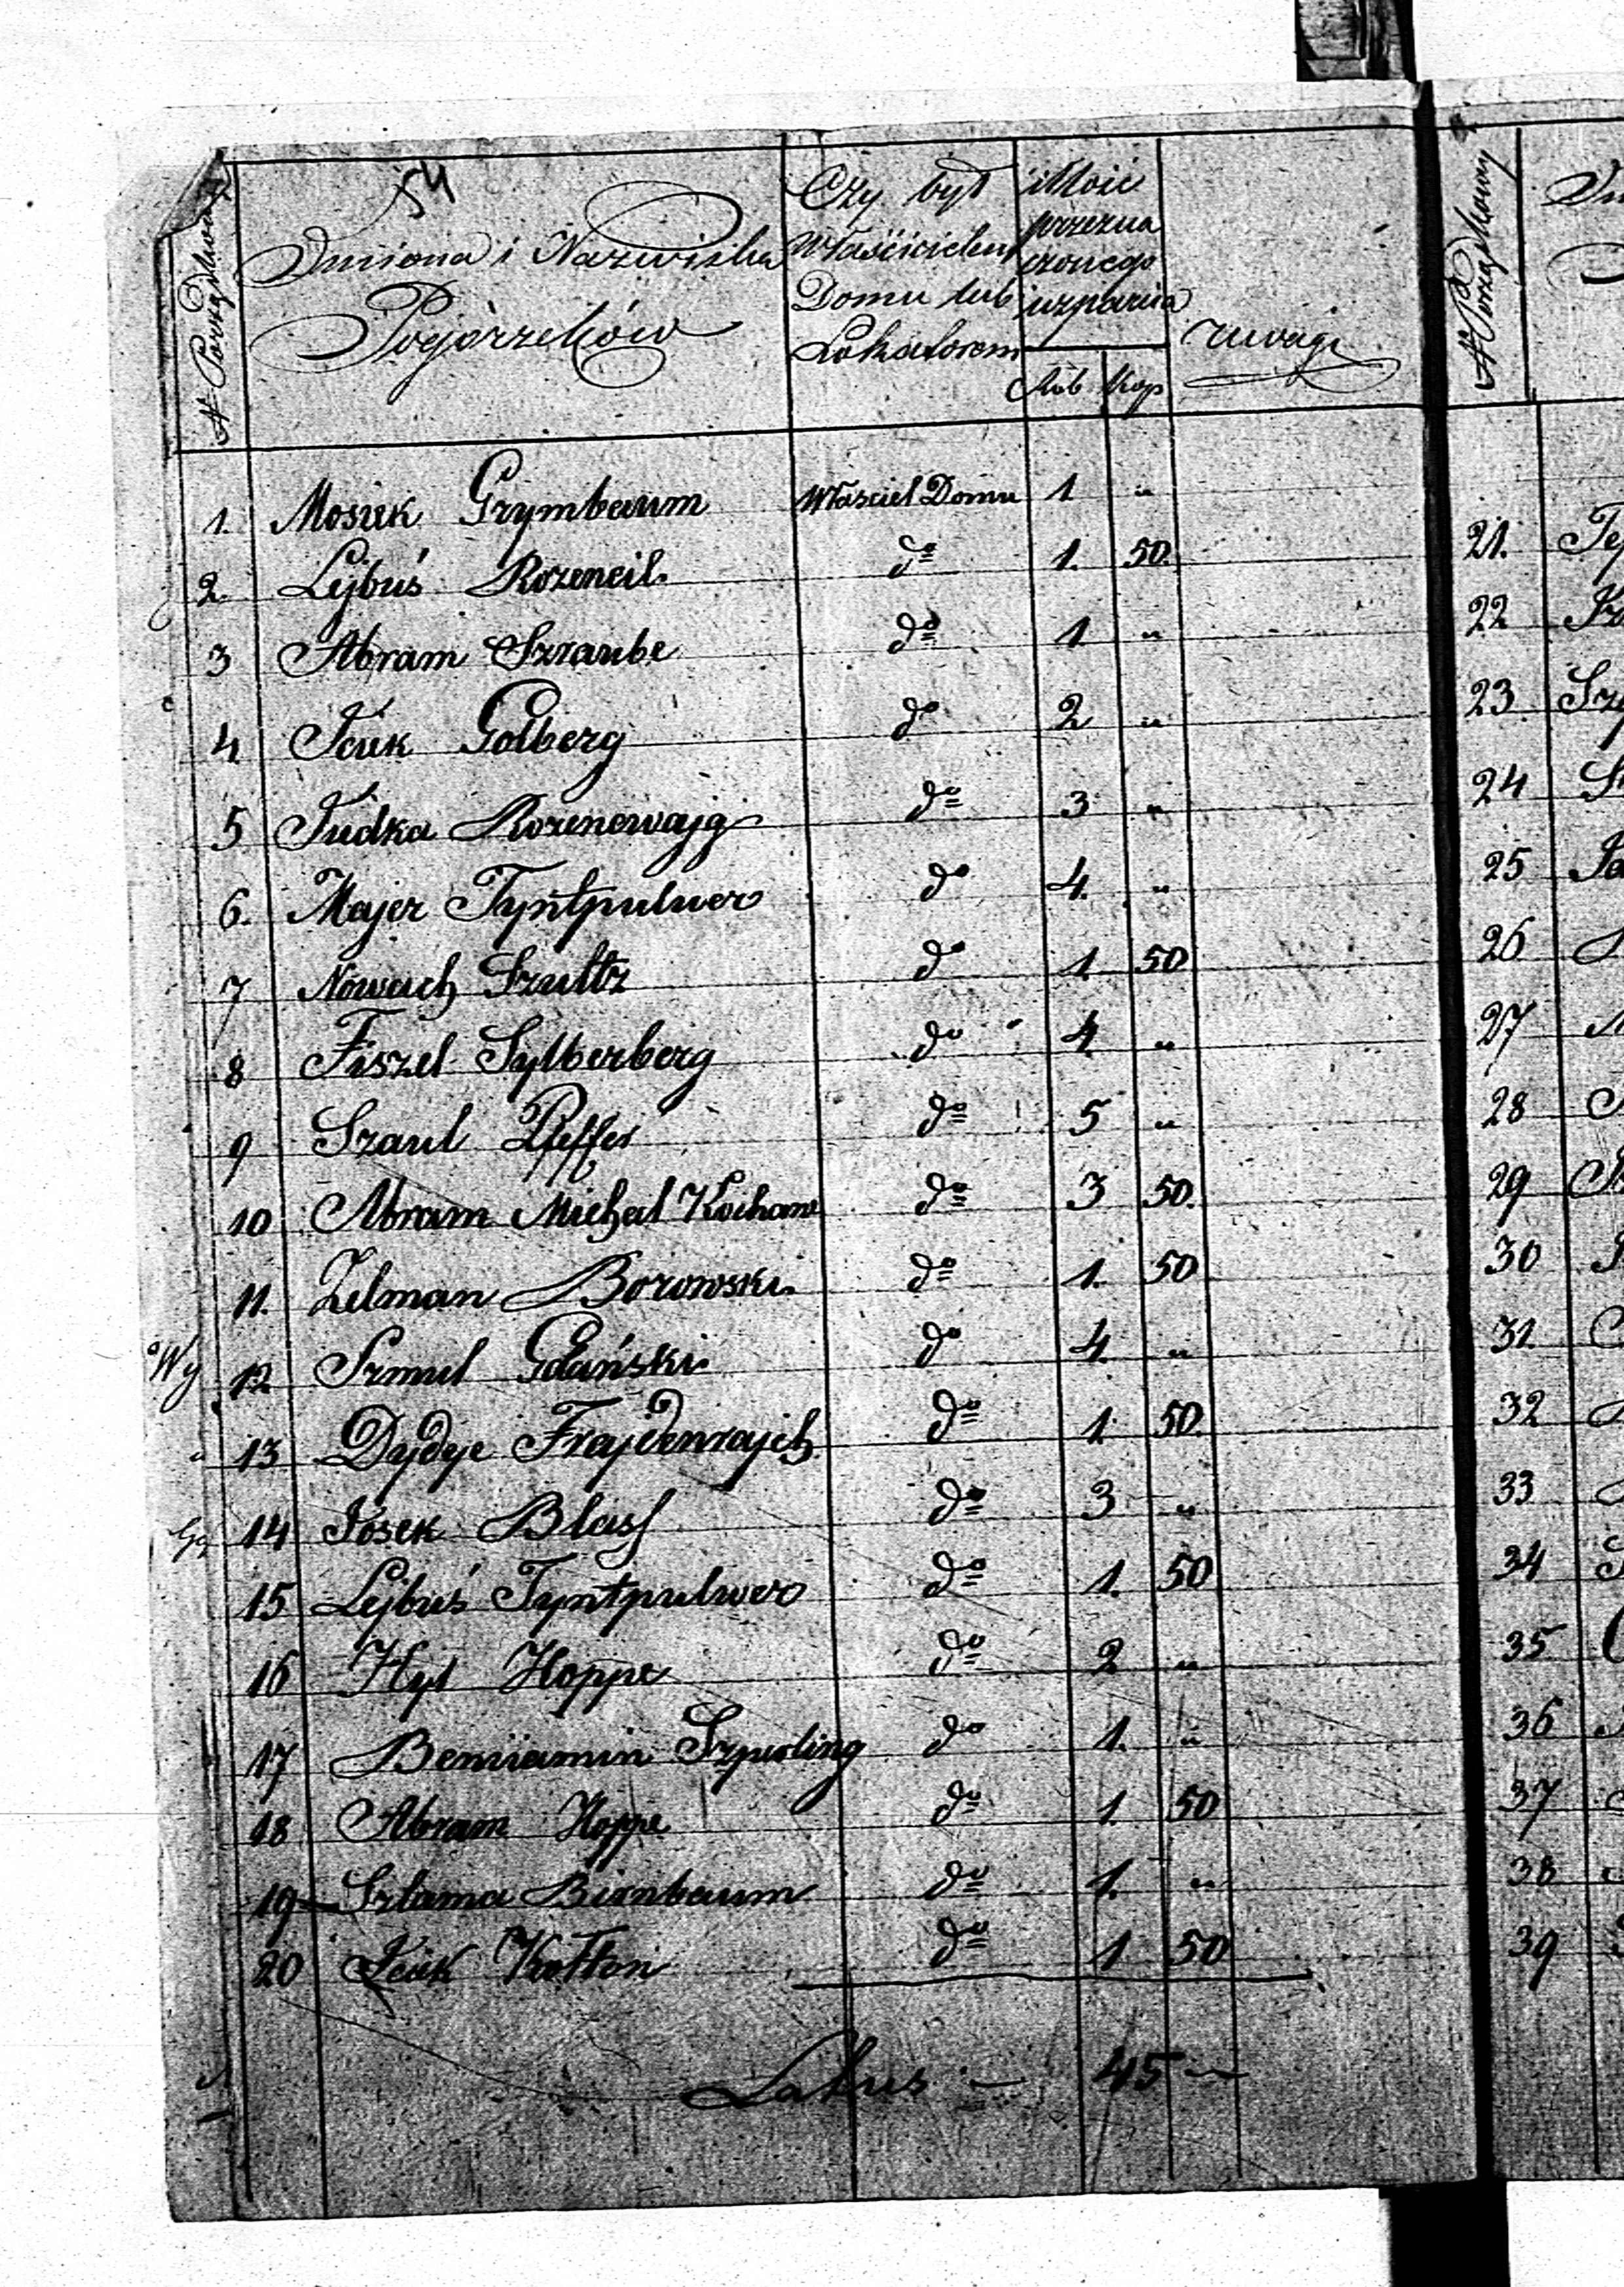 54
N Porządkowy
Imiona i Nazwiska
Pogorzelców
Czy był
Właścicielem
Domu lub
Lokatorem
illość
przezna
czonego
wzparcia
Rub Kop
Uwagi
N Porządkowy
1. Mosiek Grynbaum Właściel Domu 1 "
2. Lejbuś Rozencil do 1. 50.
3 Abram Szraube do 1 "
4 Icek Golberg do 2 "
5 Judka Rozencwajg do 3 "
6. Majer Tyntpulwer do 4. "
7 Nowach Szultz do 1 50
8 Fiszel Sylberberg do 4 "
9 Szaul Pfeffer do 5 "
10 Abram Michal Kochane do 3 50.
11. Zelman Borowski do 1. 50
12 Szmul Gdański do 4. "
13 Dydye Frajdenrajch do 1 50.
14 Josek Blass do 3 "
15 Lejbuś Tyntpulwer do 1. 50
16 Hyl Hoppe do 2 "
17 Beniiamin Szperling do 1. "
18 Abram Hoppe do 1. 50
19 Szlama Birnbaum do 1. "
20 Icek Kotton do 1 50
Latus — 45 —
Wy
21.
22
23 Sz
24
25
26
27
28
29
30
31.
32
33
34
35
36
37
38
39